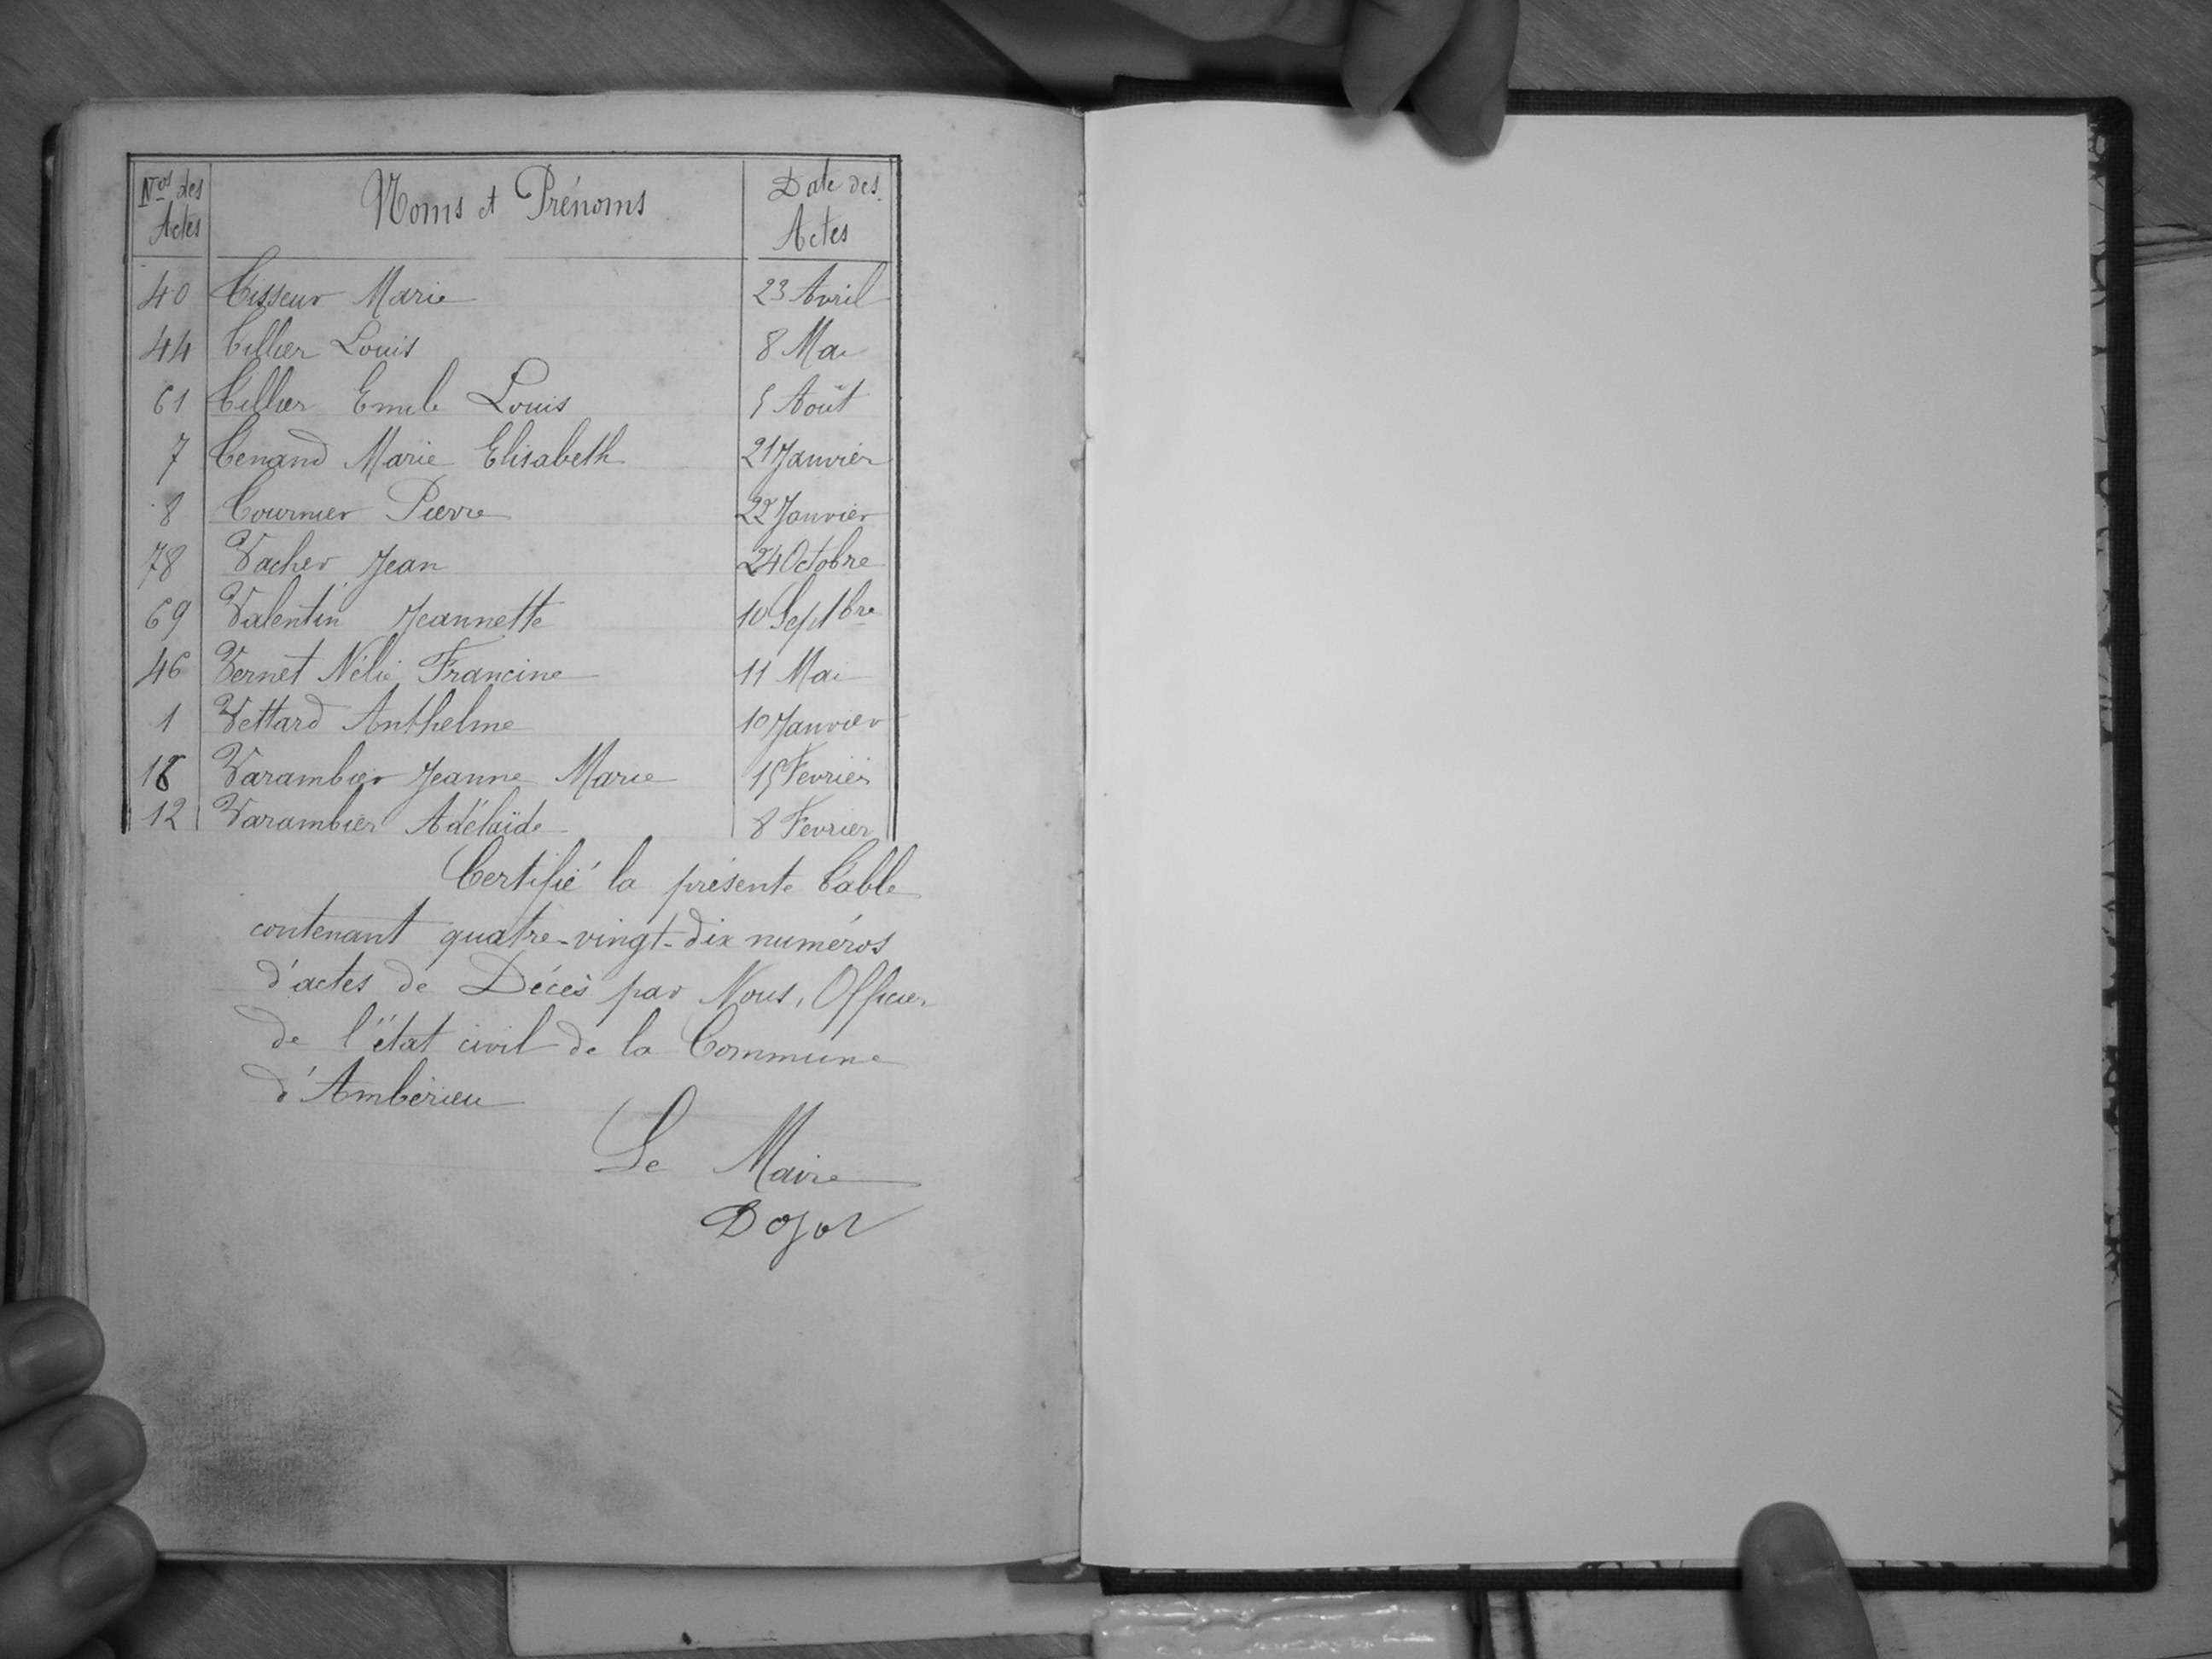 Nos des Actes Noms et Prénoms Date des Actes
40 Tisseur Marie 23 Avril
44 Tillier Louis 8 Mai
61 Tillier Emile Louis 5 Août
7 Tenand Marie Elisabeth 21 Janvier
8 Tournier Pierre 22 Janvier
78 Vacher Jean 24 Octobre
69 Valentin Jeannette 10 Septbre
46 Vernet Nélie Francine 11 Mai
1 Vettard Anthelme 10 Janvier
18 Varambier Jeanne Marie 15 Fevrier
12 Varambier Adélaïde 8 Fevrier
Certifié la présente Table
contenant quatre-vingt-dix numéros
d'actes de Décès par Nous, Officier
de l'état civil de la Commune
d'Ambérieu
Le Maire